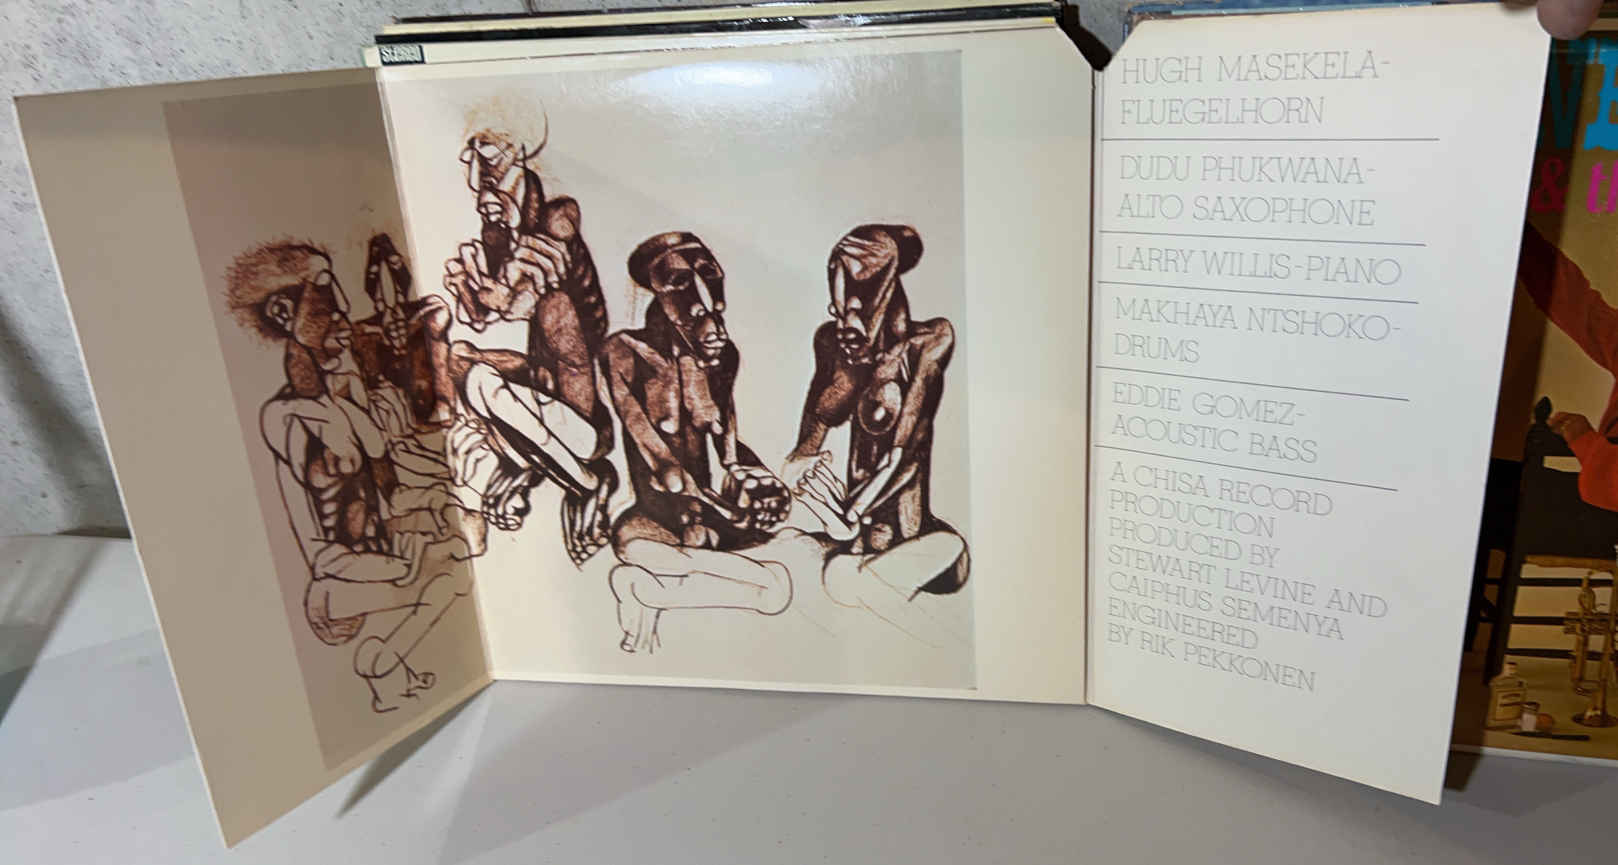 stereo
HUGH MASEKELA-
FLUEGELHORN
DUDU PHUKWANA-
ALTO SAXOPHONE
LARRY WILLIS-PIANO
MAKHAYA NTSHOKO-
DRUMS
EDDIE GOMEZ-
ACOUSTIC BASS
A CHISA RECORD
PRODUCTION
PRODUCED BY
STEWART LEVINE AND
CAIPHUS SEMENYA
ENGINEERED
BY RIK PEKKONEN
&